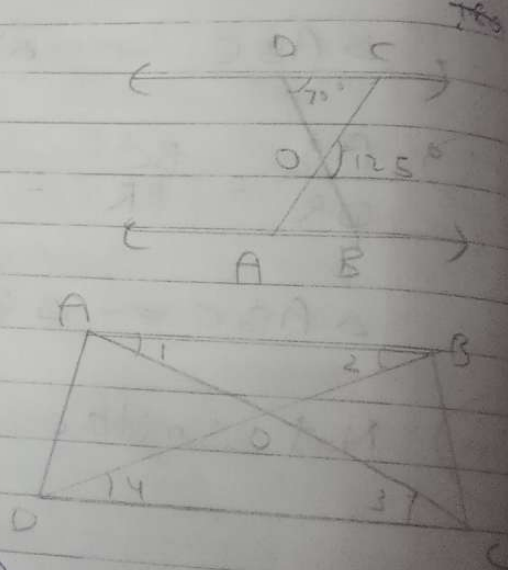 D C
70°
O 125°
A B
A B
1 2
O
4 3
D C